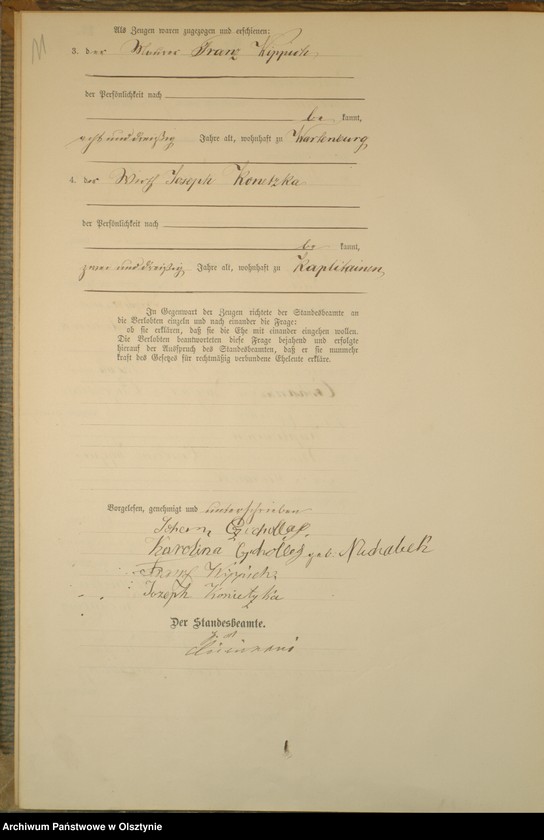 Als Zeugen waren zugezogen und erschienen:
3. der Maurer Franz Kippich,
der Persönlichkeit nach
be kannt,
acht und dreißig Jahre alt, wohnhaft zu Wartenburg,
4. der Wirth Joseph Konetzka
der Persönlichkeit nach
be kannt,
zwei und dreißig Jahre alt, wohnhaft zu Kaplitainen,
In Gegenwart der Zeugen richtete der Standesbeamte an
die Verlobten einzeln und nach einander die Frage:
ob sie erklären, daß sie die Ehe mit einander eingehen wollen.
Die Verlobten beantworteten diese Frage bejahend und erfolgte
hierauf der Ausspruch des Standesbeamten, daß er sie nunmehr
kraft des Gesetzes für rechtmäßig verbundene Eheleute erkläre.
Vorgelesen, genehmigt und unterschrieben
Karolina geb.
Franz
Joseph
Der Standesbeamte.
Archiwum Państwowe w Olsztynie